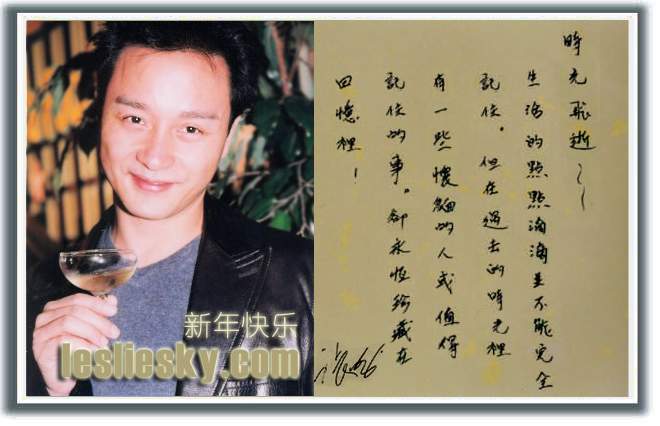 時光飛逝~~
生活的點點滴滴並不能完全
記住。但在過去的時光裡
有一些懷緬的人或值得
記住的事。卻永恆珍藏在
回憶裡！
新年快乐
lesliesky.com